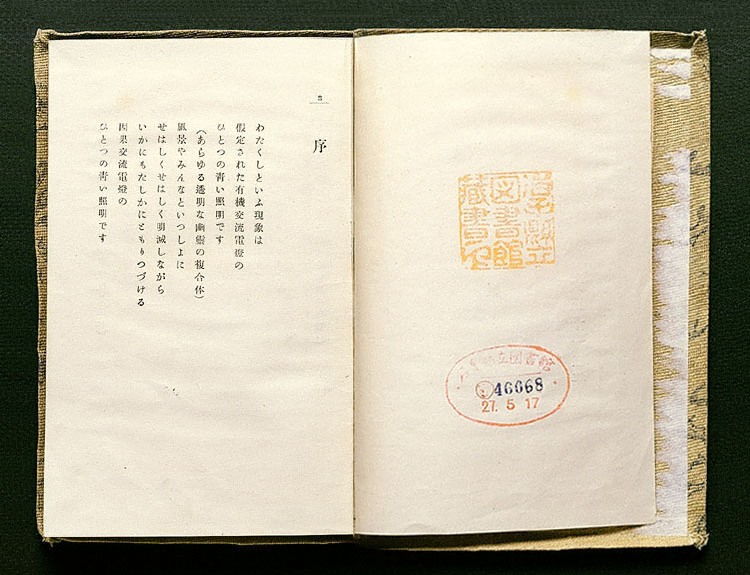 図書館
藏書印
図書館
46068
27. 5 17
序
わたくしといふ現象は
假定された有機交流電燈の
ひとつの青い照明です
(あらゆる透明な幽靈の複合体)
風景やみんなといつしよに
せはしくせはしく明滅しながら
いかにもたしかにともりつづける
因果交流電燈の
ひとつの青い照明です